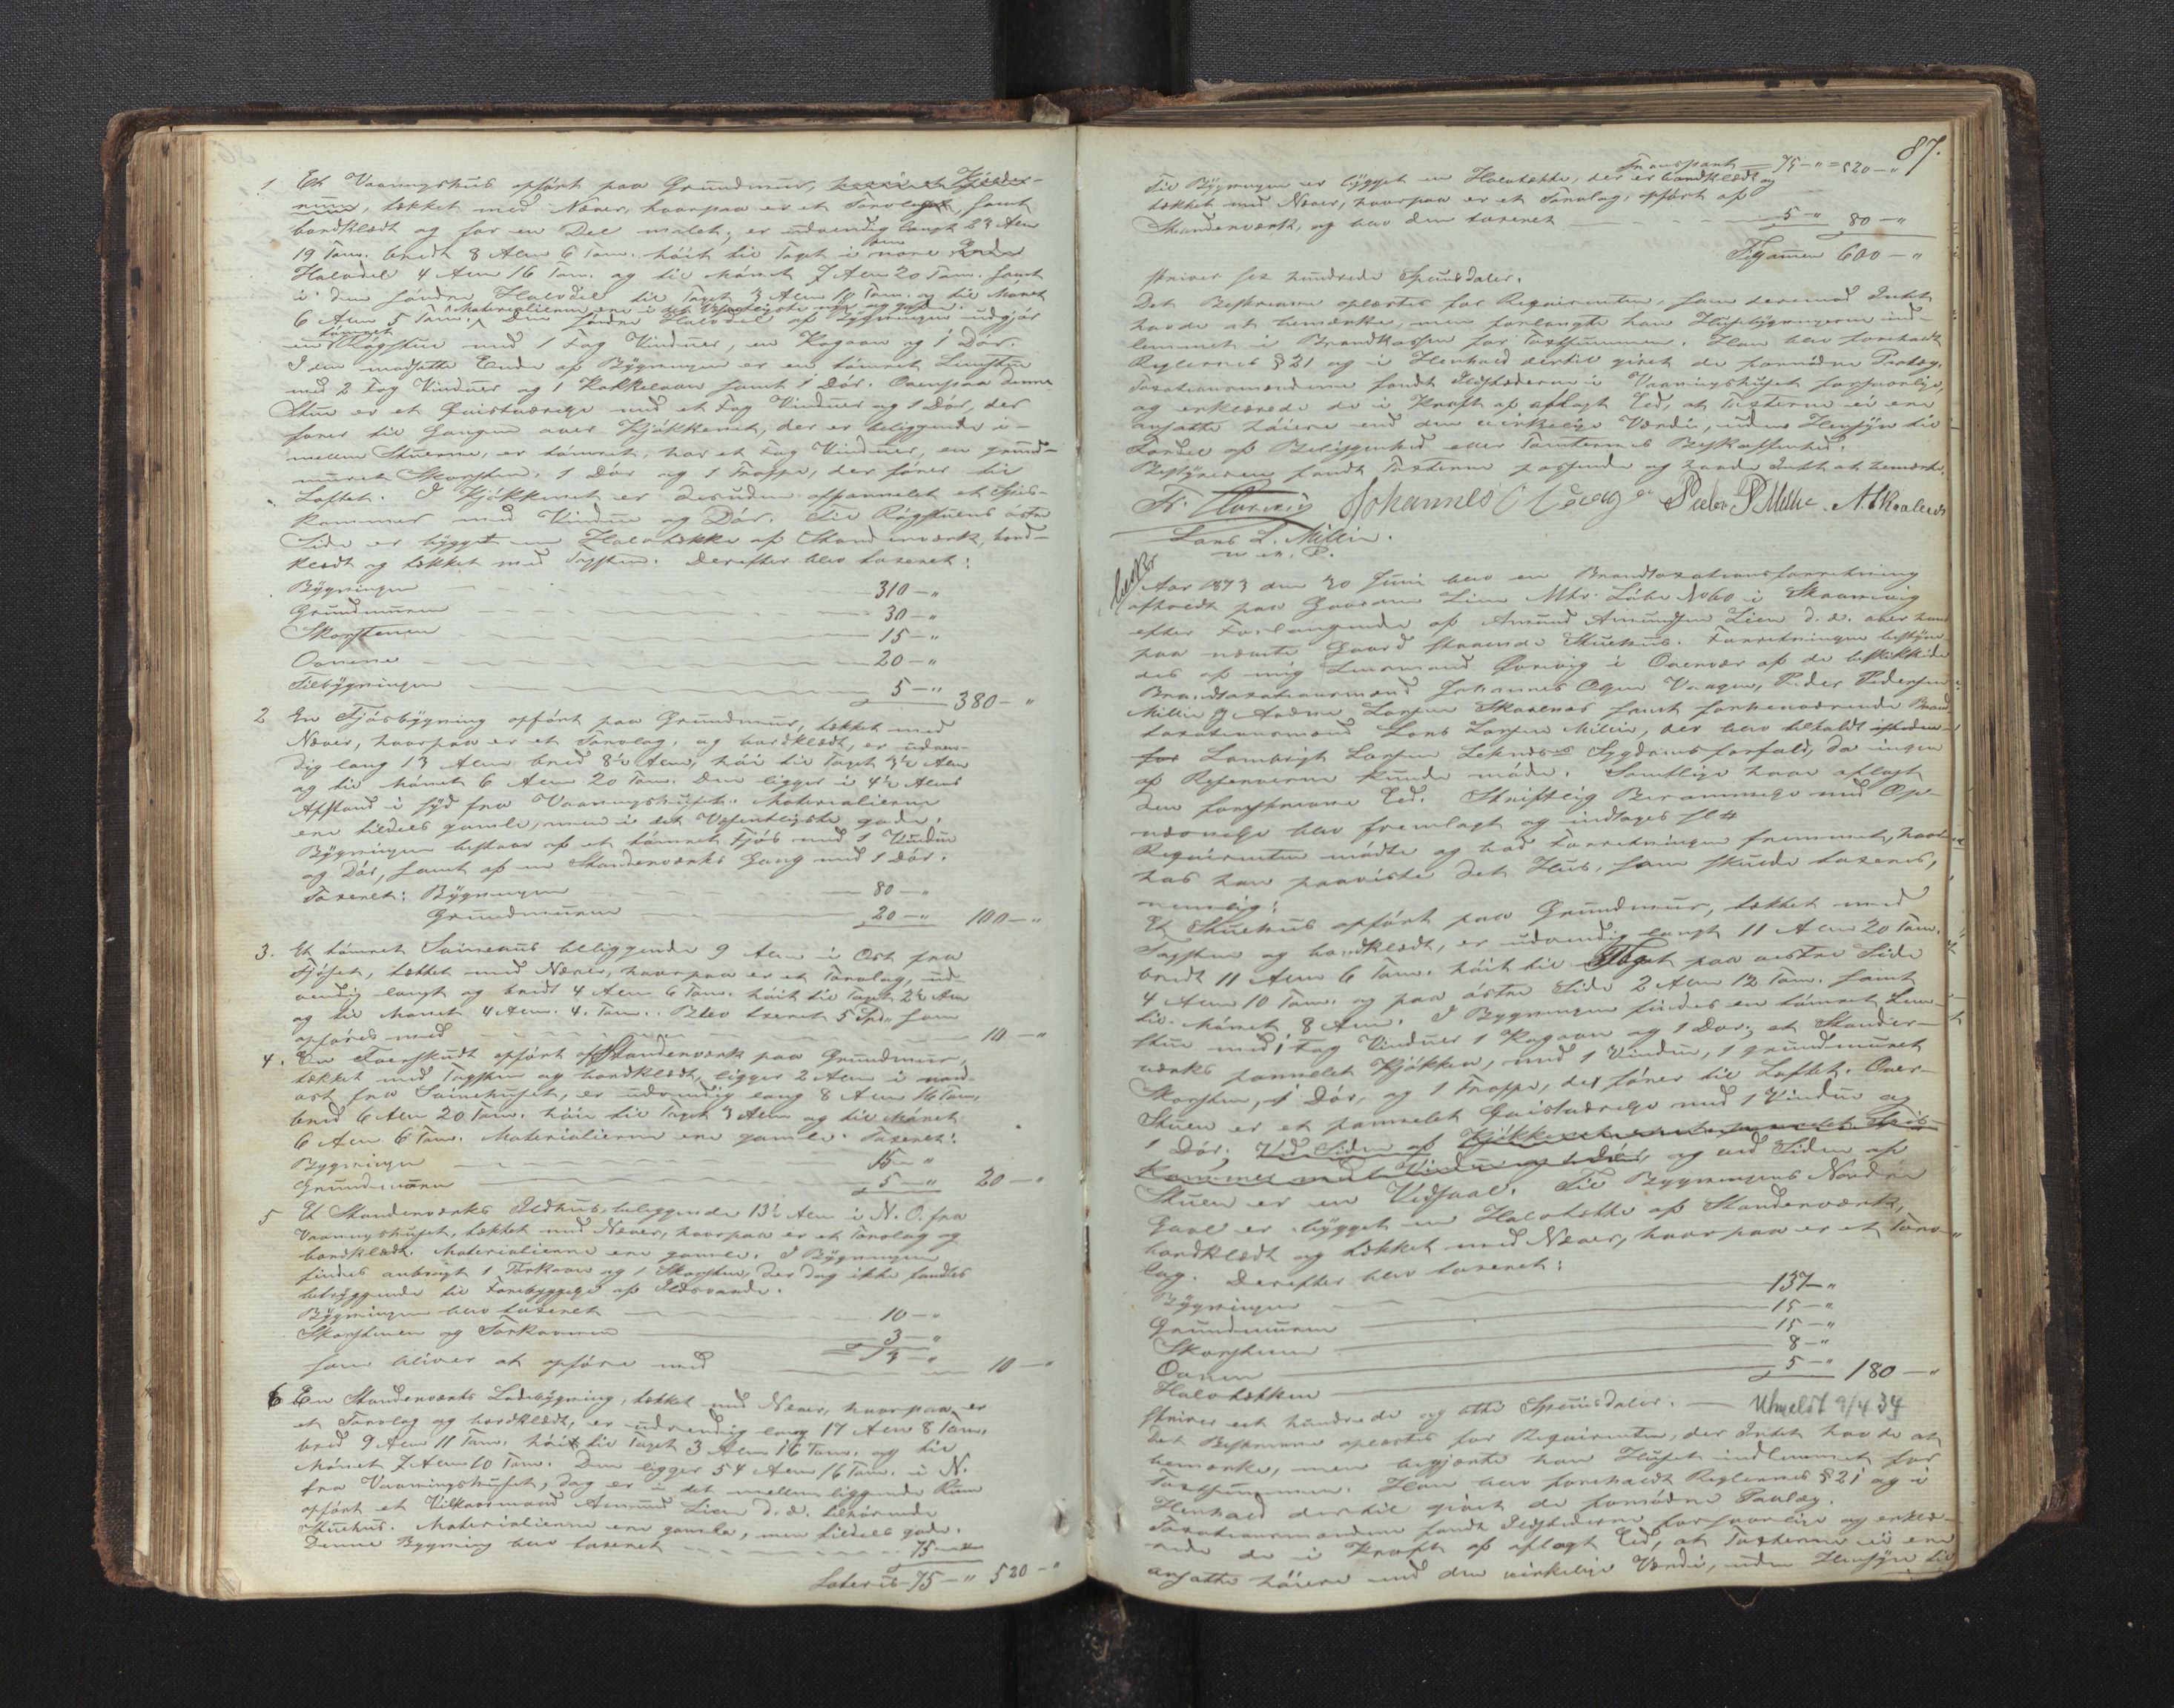 1 Et Vaaningshus opført paa Grundmuur, hvori et Kjelder-
rum, tækket med Næver, hvorpaa er et Torvlag, samt
bordklædt og for en Del malet, er udvendig langt 23 Alen
19 Tom. bredt 8 Alen 6 Tom. høit til Taget i nore Ende
Halvdel 4 Alen 16 Tom. og til Mønet 7 Alen 20 Tom. samt
i den søndre Halvdel til Taget 3 Alen 10 Tom. og til Mønet
Materialierne ere i det Væsentligste nye og gode.
6 Alen 5 Tom. Den søndre Halvdel af Bygningen udgjør
en tømret Røgstue med 1 Fag Vinduer, en Kogeovn og 1 Dør.
I den modsatte Ende af Bygningen er en tømret Lemstue
med 2 Fag Vinduer og 1 Kakkelovn samt 1 Dør. Ovenpaa denne
Stue er et Qvistværelse med et Fag Vinduer og 1 Dør, der
fører til Gangen over Kjøkkenet, der er beliggende i-
mellem Stuerne, er tømret, har et Fag Vinduer, en grund-
muret Skorsten, 1 Dør og 1 Trappe, der fører til
Loftet. I Kjøkkenet er desuden afpannelet et Spis-
kammer med Vindue og Dør. Til Røgstuens østre
Side er bygget en Halvtække af Standerværk, bord-
klædt og tækket med Tagsten. Derefter blev taxeret:
Bygningen 310 — "
Grundmuren 30 — "
Skorstenen 15 — "
Ovnene 20 — "
Tilbygningen 5 — " 380 — "
2 En Fjøsbygning opført paa Grundmuur, tækket med
Næver, hvorpaa er et Torvlag, og bordklædt, er udven-
dig lang 13 Alen bred 8½ Alen, høi til Taget 3½ Alen
og til Mønet 6 Alen 20 Tom. Den ligger i 4½ Alens
Afstand i syd fra Vaaningshuset. Materialierne
ere tildels gamle, men i det Væsentligste gode.
Bygningen bestaar af et tømret Fjøs med 1 Vindue
og Dør, samt af en Standerværks Gang med 1 Dør.
Taxeret: Bygningen 80 — "
Grundmuren 20 — " 100 — "
3. Et tømret Svinehus beliggende 9 Alen i Ost fra
Fjøset, tækket med Næver, hvorpaa er et Torvlag, ud-
vendig langt og bredt 4 Alen 6 Tom. høit til Taget 2½ Alen
og til Mønet 4 Alen 4 Tom. Blev taxeret 5 Spd., som
opføres med 10 — "
4. En Toerskudt opført af Standerværk paa Grundmuur,
tækket med Tagsten og bordklædt, ligger 2 Alen i nord-
ost fra Svinehuset, er udvendig lang 8 Alen 16 Tom.
bred 6 Alen 20 Tom. høi til Taget 3 Alen og til Mønet
6 Alen 6 Tom. Materialierne ere gamle. Taxeret:
Bygningen 15 — "
Grundmuren 5 — " 20 — "
5 Et Standerværks Ildhus, beliggende 13½ Alen i N. O. fra
Vaaningshuset, tækket med Næver, hvorpaa er et Torvlag og
bordklædt. Materialierne ere gamle. I Bygningen
findes anbragt 1 Tørkeovn og 1 Skorsten der dog ikke fandtes
betryggende til Forebyggelse af Ildsvaade.
Bygningen blev taxeret 10 — "
Skorstenen og Tørkeovnen 3 — "
13 — "
som bliver at opføre med 10 — "
6 En Standerværks Ladebygning, tækket med Næver, hvorpaa er
et Torvlag og bordklædt, er udvendig lang 17 Alen 8 Tom.
bred 9 Alen 11 Tom. høi til Taget 3 Alen 16 Tom. og til
Mønet 7 Alen 10 Tom. Den ligger 54 Alen 16 Tom. i N.
fra Vaaningshuset, dog er i det mellemliggende Rum
opført et Vilkaarsmand Amund Lien d. æ. tilhørende
Stuehus. Materialierne ere gamle, men tildels gode.
Denne Bygning blev taxeret 75 — "
Lateris 75 — " 520 — "
87.
Transport 75 — " = 520 — "
Til Bygningen er bygget en Halvtække, der er bordklædt og
tækket med Næver, hvorpaa er et Torvlag, opført af
Standerværk, og blev den taxeret 5 — " 80 — "
Tilsammen 600 — "
skriver sex hundrede Speciesdaler.
Det Beskrevne oplæstes for Reqvirenten, som derimod Intet
havde at bemærke, men forlangte han Husebygningerne ind-
lemmet i Brandkassen for Taxtsummen. Han blev foreholdt
Reglernes § 21 og i Henhold dertil givet de fornødne Paalæg.
Taxationsmændene fandt Ildstederne i Vaaningshuset forsvarlige,
og erklærede de i Kraft af aflagt Ed, at Taxterne ei ere
ansatte høiere end den virkelige Værdi, uden Hensyn til
Fordel af Beliggenhed eller Tomternes Beskaffenhed.
Bestyreren fandt Taxterne passende og havde Intet at bemærke.
Johannes O Vaage Peder P Millie
Lars L. Millie.
m. p. P.
Aar 1873 den 30 Juni blev en Brandtaxationsforretning
afholdt paa Gaarden Lien Mtr. Løbe No 60 i Skaanevig
efter Forlangende af Amund Amundsen Lien d. æ. over hans
paa nævnte Gaard staaende Stuehus. Forretningen bestyre-
des af mig Lensmand i Overvær af de beskikkede
Brandtaxationsmænd Johannes Olsen Vaagen, Peder Pedersen
Millie og Larsen Skaalnes samt forhenværende Brand-
taxationsmand Lars Larsen Millie, der blev tilkaldt
for Larsen Sygdoms forfald, da ingen
af Reserverne kunde møde. Samtlige have aflagt
den foreskrevne Ed. Skriftlig Berammelse med Op-
nævnelse blev fremlagt og indtages #
Reqvirenten mødte og bad Forretningen fremmet, hvor-
hos han paaviste det Hus, som skulde taxeres,
nemlig:
Et Stuehus opført paa Grundmuur, tækket med
Tagsten og bordklædt, er udvendig langt 11 Alen 20 Tom.
bredt 11 Alen 6 Tom. høit til Taget paa vestre Side
4 Alen 10 Tom. og paa østre Side 2 Alen 12 Tom. samt
til Mønet 8 Alen. I Bygningen findes en tømret Lem-
stue med 1 Fag Vinduer 1 Kogeovn og 1 Dør; et Stander-
værks pannelet Kjøkken, med 1 Vindue, 1 grundmuret
Skorsten, 1 Dør, og 1 Trappe, der fører til Loftet. Over
Stuen er et pannelet Qvistværelse med 1 Vindue og
1 Dør; Ved Siden af Kjøkkenet er et pannelet Spis-
kammer med 1 Vindue og 1 Dør, og ved Siden af
Stuen er en Vedsval. Til Bygningens Nordre
Gavl er bygget en Halvtække af Standerværk,
bordklædt og tækket med Næver, hvorpaa er et Torv-
lag. Derefter blev taxeret:
Bygningen 137 — "
Grundmuren 15 — "
Skorstenen 15 — "
Ovnen 8 — "
Halvtækken 5 — " 180 — "
skriver eet hundrede og otti Speciesdaler. — Utmeldt 9/4 34
Det Beskrevne oplæstes for Reqvirenten, der Intet havde at
bemærke, men begjærte han Huset indlemmet for
Taxtsummen. Han blev foreholdt Reglernes § 21 og i
Henhold dertil givet de fornødne Paalæg.
Taxationsmændene fandt Ildstederne forsvarlige og erklæ-
rede de i Kraft af aflagt Ed, at Taxterne ei ere
ansatte høiere end den virkelige Værdi, uden Hensyn til